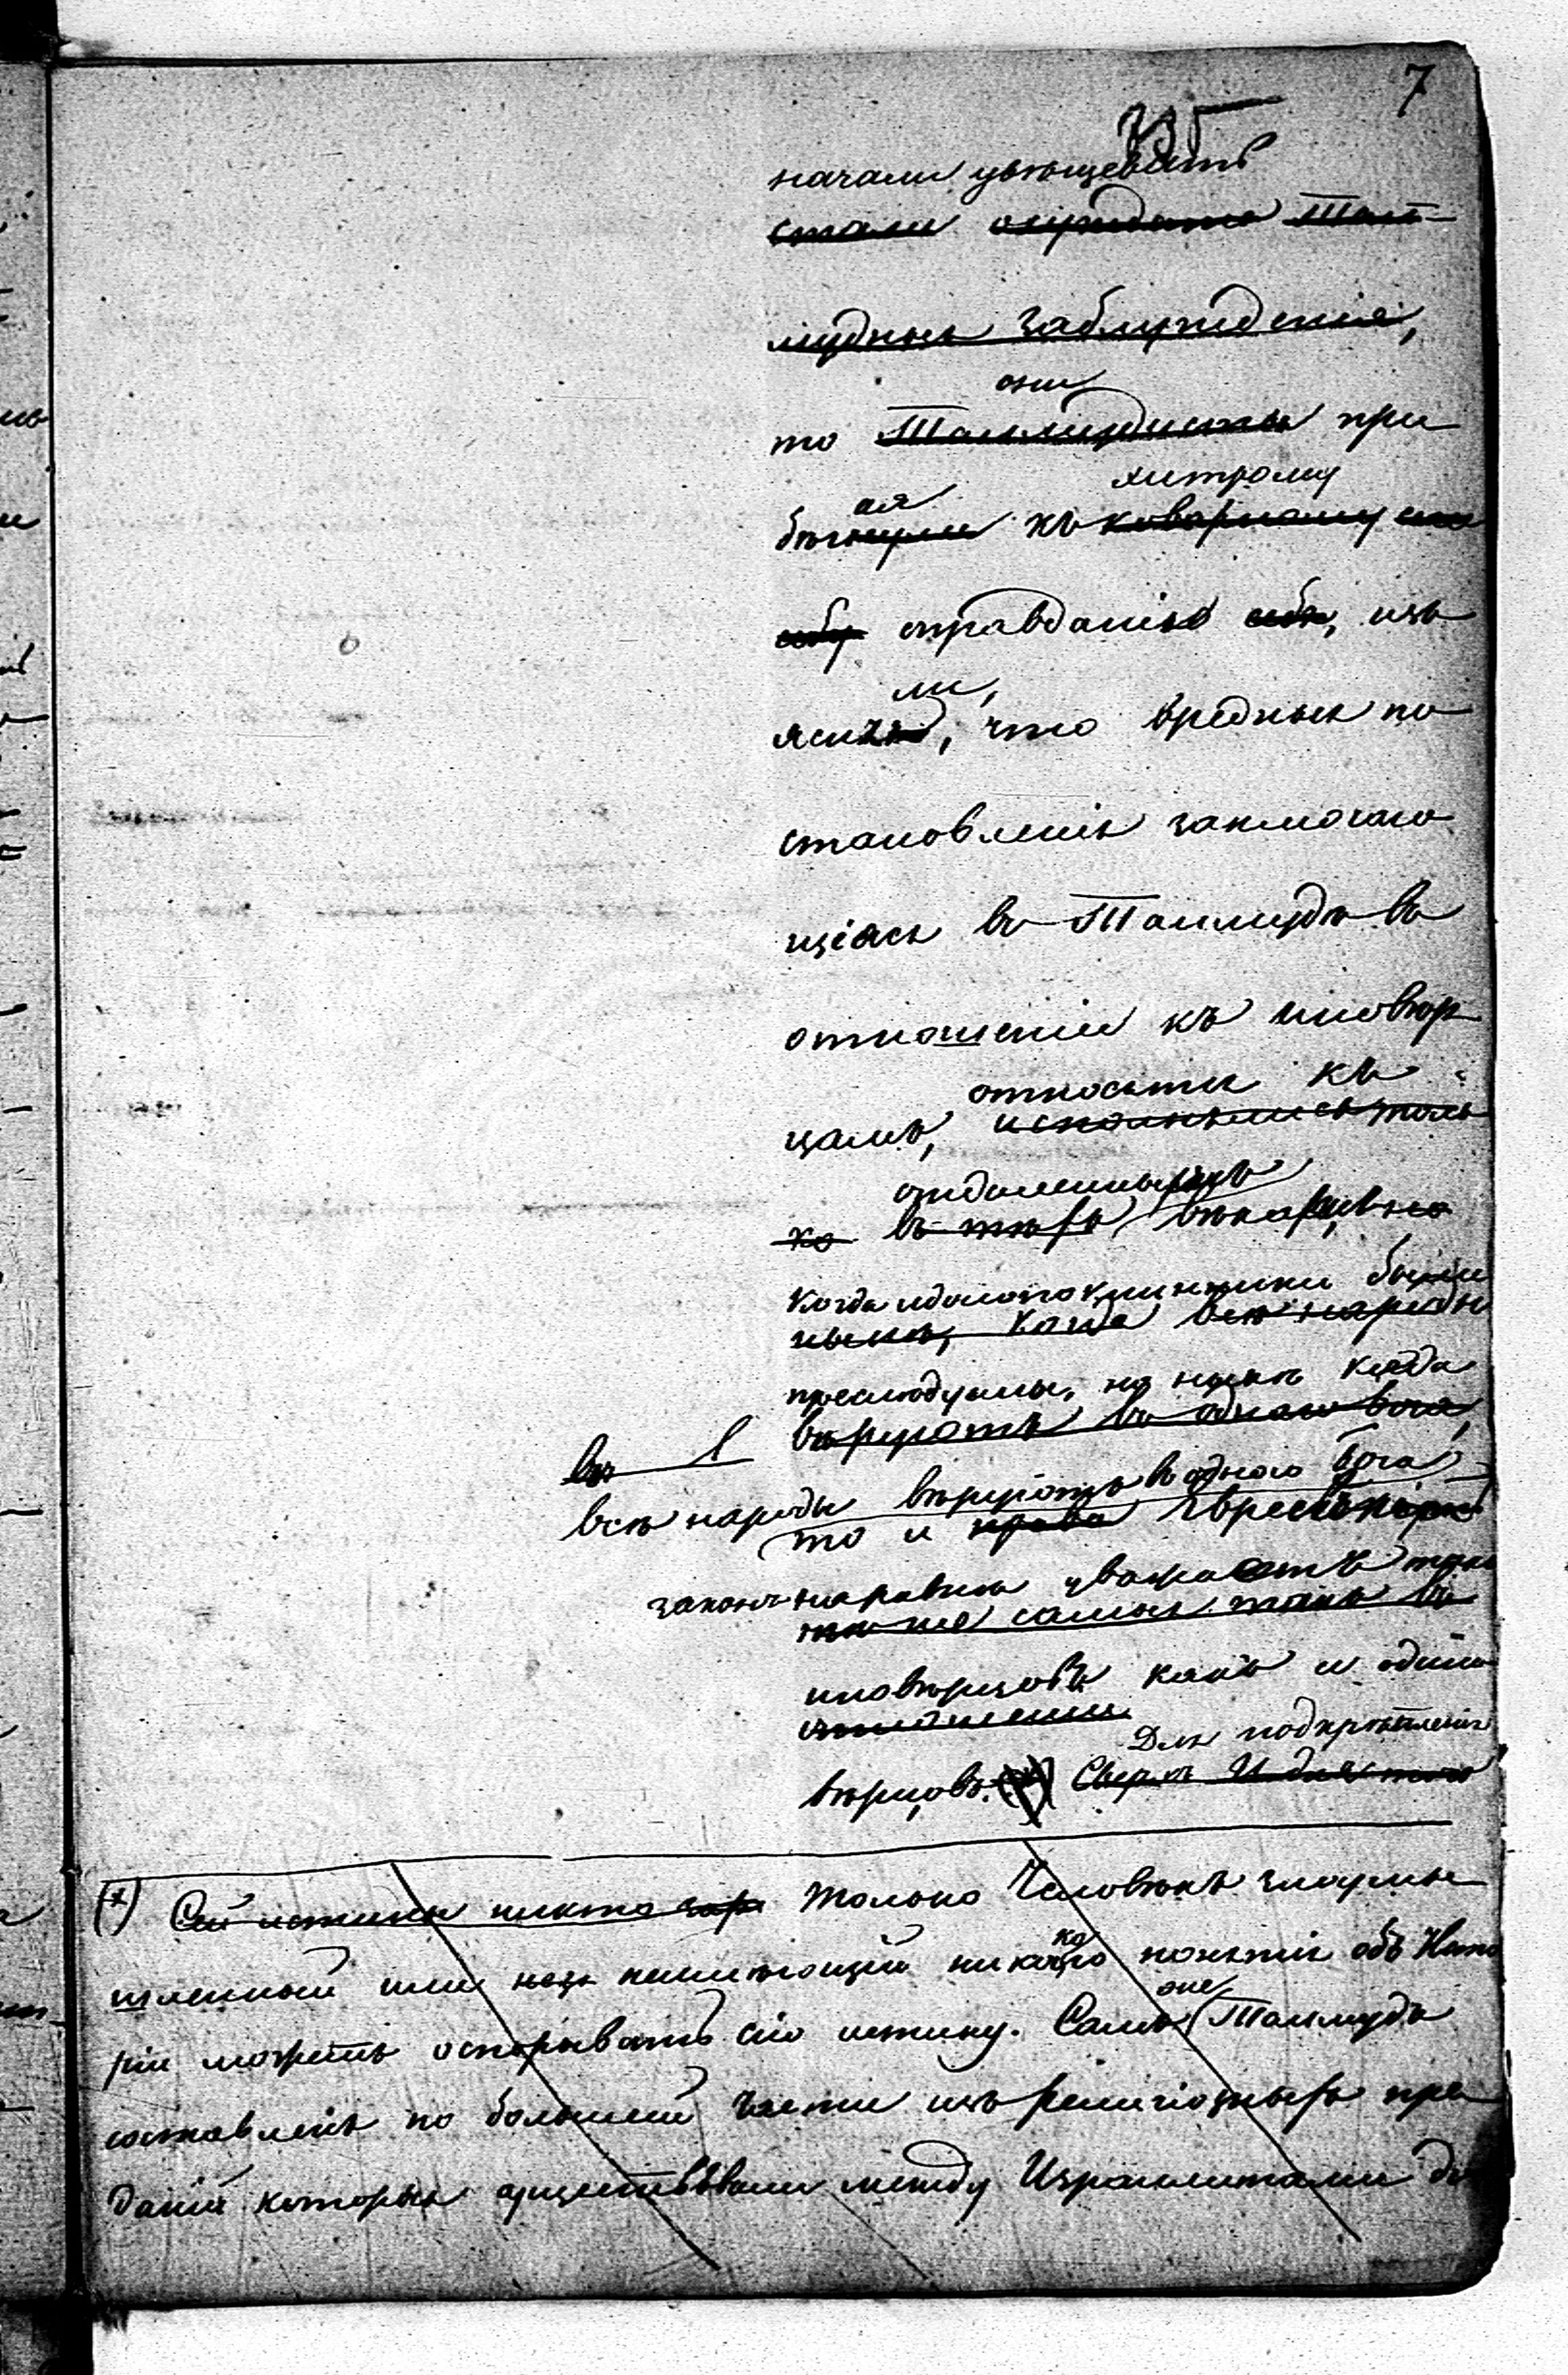 7
начали увѣщевать
стали осуждать Тал-
мудныя заблужденія,
они
то Талмудисты при
ая хитрому
бѣгнули къ коварному спо
собу оправданія себя, изъ
ли,
ясняя, что вредныя по
становленія заключаю
щіяся въ Талмудѣ въ
отношеніи къ иновѣр
относятся къ
цамъ, исполнялись толь
отдаленнымъ
ко въ тѣхъ вѣкахъ,
когда идолопоклонники были
когда всѣ народы
преслѣдуемы, но нынѣ когда
вѣруютъ въ однаго Бога,
въ
всѣ народы вѣруютъ въ однаго Бога
то и права Еврейскій
законъ наравнѣ уважаетъ какъ
самыя такъ въ
иновѣрцовъ какъ и одно
отношеніи.
Для подкрѣпленія
вѣрцовъ. (*) Сверхъ И для того
(*) Сей истины никто Только человѣкъ злоумы
шленный или неимѣющій никакого понятія объ Исто
ріи можетъ оспоривать сію истину. Самъ же Талмудъ
составленъ по большей части изъ религіозныхъ пре
даній которыя существовали между Израилитами до